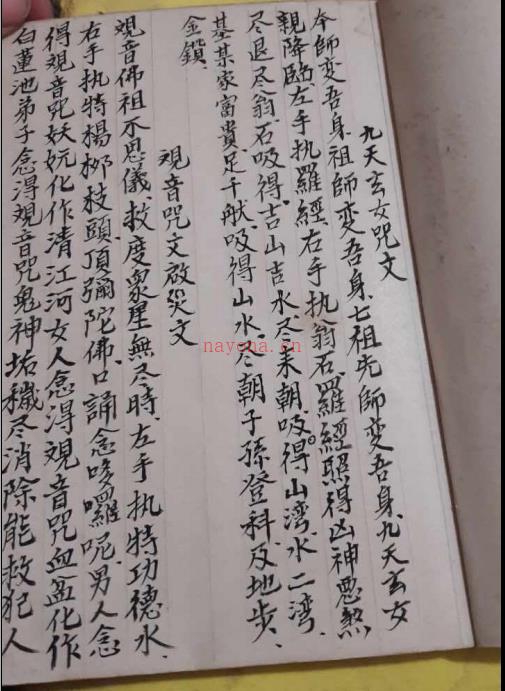 九天玄女咒文
本師变吾身、祖師变吾身、七祖先師变吾身、九天玄女
親降臨、左手执羅經、右手执翁石、羅經照得凶神恶煞
尽退尽、翁石吸得吉山吉水尽来朝、吸得山湾、水二湾、
基某家富貴足千猷、吸得山水尽朝子孫登科及地步、
金鎖、
観音咒文啟災文
観音佛祖不思儀、救度衆星無尽時、左手执特功德水、
右手执特楊柳枝、頭頂彌陀佛、口誦念哆囉呢、男人念
得観音咒妖妧化作清江河女人念得観音咒血盆化作
白蓮池弟子念得観音咒鬼神垢穢尽消除能救犯人
nayona.cn